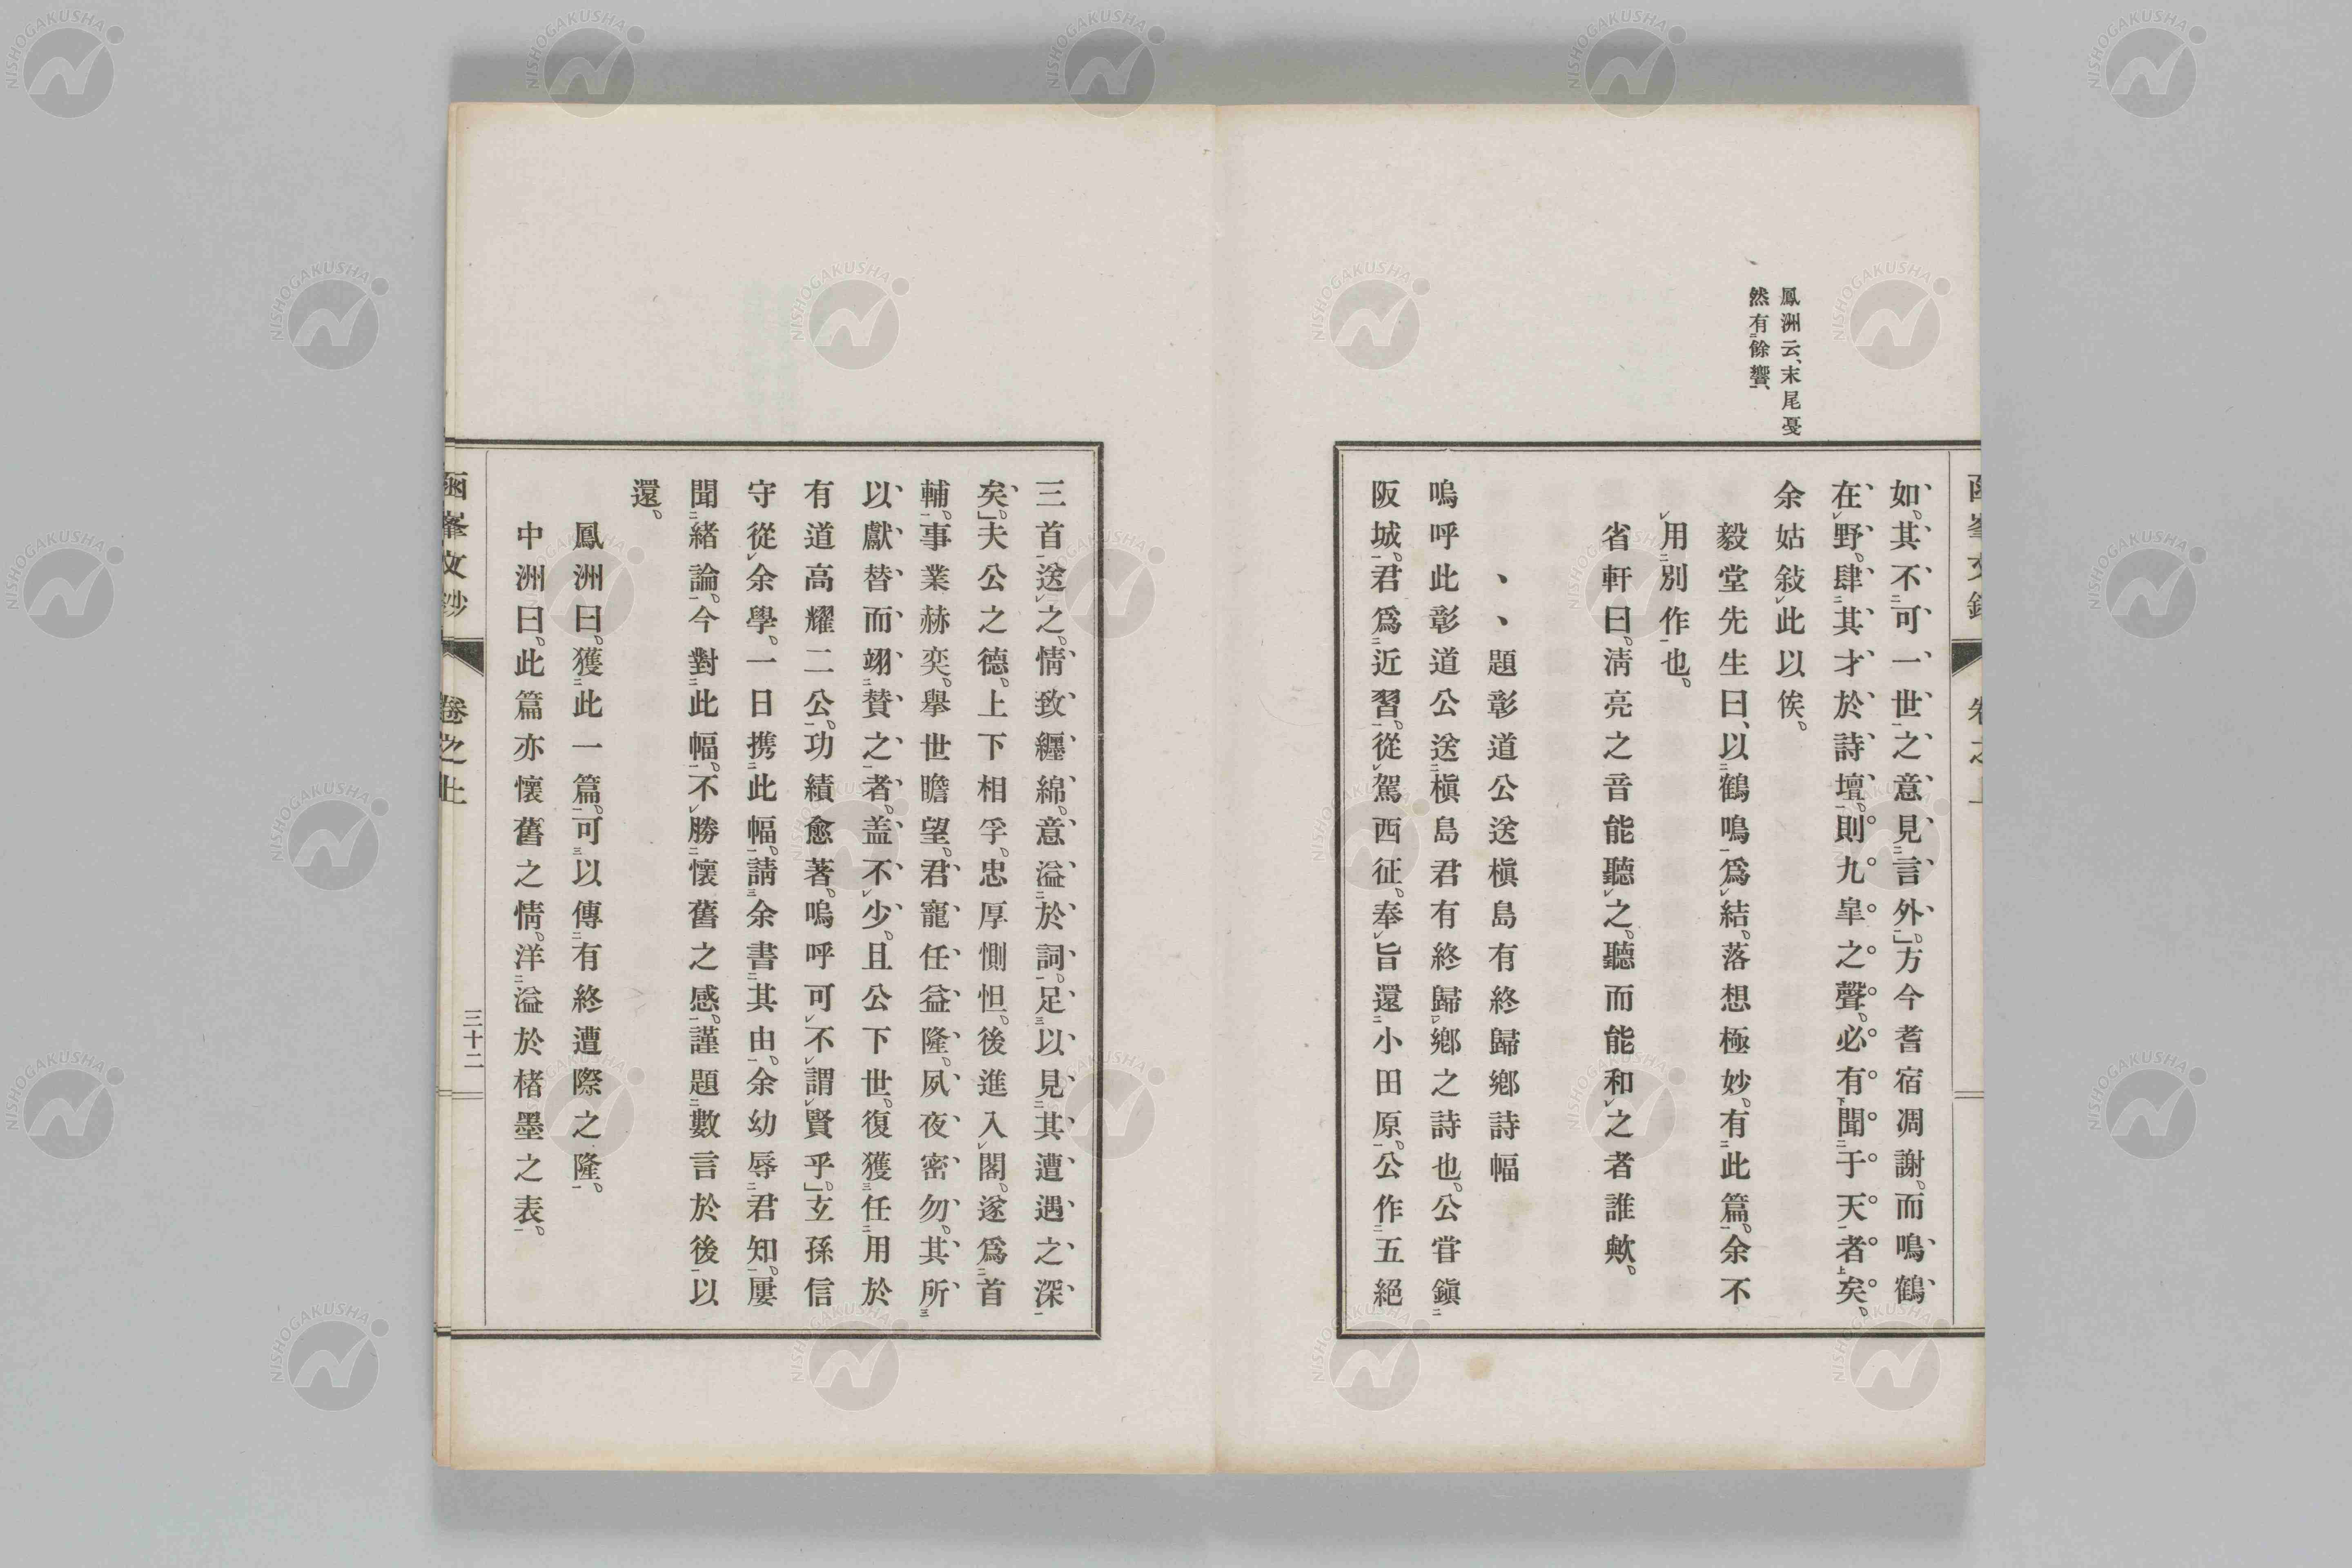 鳳洲云、末尾戞
然有餘響、
如。其不可一世之意見言外。」方今耆宿凋謝。而鳴鶴
在野。肆其才於詩壇。則九皐之聲。必有聞于天者矣。
余姑敍此以俟。
毅堂先生曰、以鶴鳴爲結。落想極妙。有此篇。余不
用別作也。
省軒曰。淸亮之音能聽之。聽而能和之者誰歟。
、、題彰道公送槇島有終歸鄕詩幅
嗚呼此彰道公送槇島君有終歸鄕之詩也。公甞鎭
阪城。君爲近習。從駕西征。奉旨還小田原。公作五絕
三首送之。情致纏綿。意溢於詞。足以見其遭遇之深
矣。」夫公之德。上下相孚。忠厚惻怛。後進入閣。遂爲首
輔。事業赫奕。擧世瞻望。君寵任益隆。夙夜密勿。其所
以獻替而翊贊之者。盖不少。且公下世。復獲任用於
有道高耀二公。功績愈著。嗚呼可不謂賢乎。」玄孫信
守從余學。一日携此幅。請余書其由。余幼辱君知。屢
聞緖論。今對此幅。不勝懷舊之感。謹題數言於後以
還。
鳳洲曰。獲此一篇。可以傳有終遭際之隆。
中洲曰。此篇亦懷舊之情。洋溢於楮墨之表。
函峯文鈔
卷之上
三十二
NISHOGAKUSHA